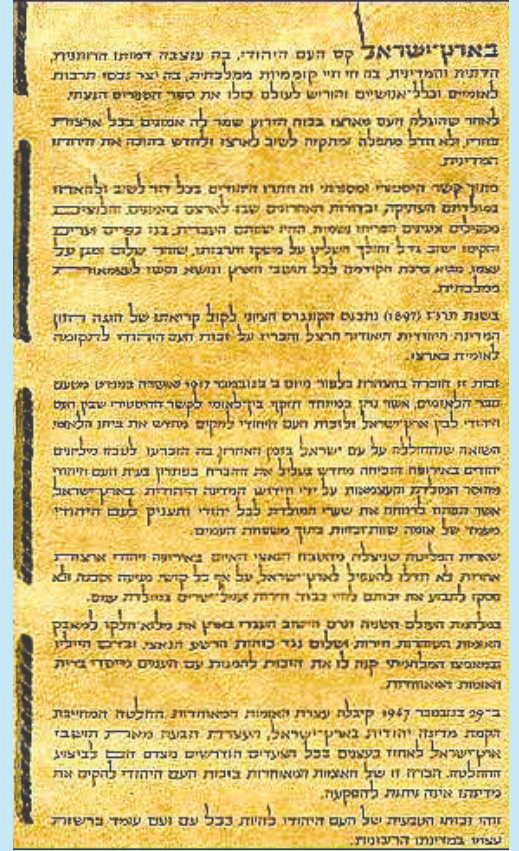 בארץ־ישראל קם העם היהודי, בה עוצבה דמותו הרוחנית,
הדתית והמדינית, בה חי חיי קוממיות ממלכתית, בה יצר נכסי תרבות
לאומיים וכלל־אנושיים והוריש לעולם כולו את ספר הספרים הנצחי.
לאחר שהוגלה העם מארצו בכוח הזרוע שמר לה אמונים בכל ארצות
פזוריו, ולא חדל מתפלה ומתקוה לשוב לארצו ולחדש בתוכה את חירותו
המדינית.
מתוך קשר היסטורי ומסורתי זה חתרו היהודים בכל דור לשוב ולהאחז
במולדתם העתיקה, ובדורות האחרונים שבו לארצם בהמונים, וחלוצים,
מעפילים ומגינים הפריחו נשמות, החיו שפתם העברית, בנו כפרים וערים,
והקימו ישוב גדל והולך השליט על משקו ותרבותו, שוחר שלום ומגן על
עצמו, מביא ברכת הקידמה לכל תושבי הארץ ונושא נפשו לעצמאות
ממלכתית.
בשנת תרנ״ז (1897) נתכנס הקונגרס הציוני לקול קריאתו של הוגה חזון
המדינה היהודית תיאודור הרצל והכריז על זכות העם היהודי לתקומה
לאומית בארצו.
זכות זו הוכרה בהצהרת בלפור מיום ב׳ בנובמבר 1917 ואושרה במנדט מטעם
חבר הלאומים, אשר נתן במיוחד תוקף בין־לאומי לקשר ההיסטורי שבין העם
היהודי לבין ארץ־ישראל ולזכות העם היהודי להקים מחדש את ביתו הלאומי.
השואה שנתחוללה על עם ישראל בזמן האחרון, בה הוכרעו לטבח מיליונים
יהודים באירופה, הוכיחה מחדש בעליל את ההכרח בפתרון בעית העם היהודי
מחוסר המולדת והעצמאות על־ידי חידוש המדינה היהודית בארץ־ישראל,
אשר תפתח לרווחה את שערי המולדת לכל יהודי ותעניק לעם היהודי
מעמד של אומה שוות־זכויות בתוך משפחת העמים.
שארית הפליטה שניצלה מהטבח הנאצי האיום באירופה ויהודי ארצות
אחרות לא חדלו להעפיל לארץ־ישראל, על אף כל קושי, מניעה וסכנה, ולא
פסקו לתבוע את זכותם לחיי כבוד, חירות ועמל־ישרים במולדת עמם.
במלחמת העולם השניה תרם הישוב העברי בארץ את מלוא־חלקו למאבק
האומות השוחרות חירות ושלום נגד כוחות הרשע הנאצי, ובדם חייליו
ובמאמצו המלחמתי קנה לו את הזכות להמנות עם העמים מייסדי ברית
האומות המאוחדות.
ב־29 בנובמבר 1947 קיבלה עצרת האומות המאוחדות החלטה המחייבת
הקמת מדינה יהודית בארץ־ישראל, העצרת תבעה מאת תושבי
ארץ־ישראל לאחוז בעצמם בכל הצעדים הנדרשים מצדם הם לביצוע
ההחלטה. הכרה זו של האומות המאוחדות בזכות העם היהודי להקים את
מדינתו אינה ניתנת להפקעה.
זוהי זכותו הטבעית של העם היהודי להיות ככל עם ועם עומד ברשות
עצמו במדינתו הריבונית.